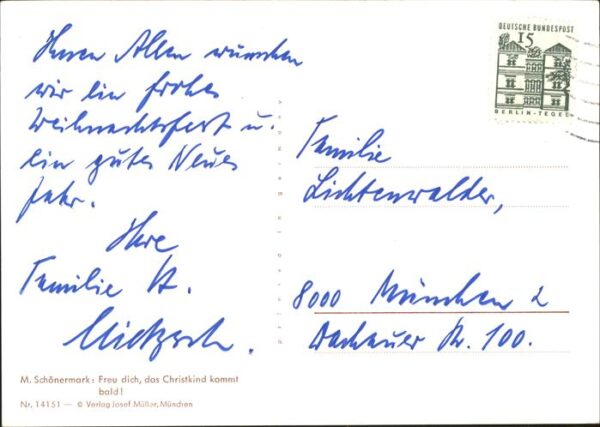 Ihnen Allen wünschen
wir ein frohes
Weihnachtsfest u.
ein gutes Neues
Jahr.
Ihre
Familie H.
DEUTSCHE BUNDESPOST
15
BERLIN-TEGEL
Familie
Lichtenwalder,
8000 München 2
Dachauer Str. 100.
M. Schönermark: Freu dich, das Christkind kommt
bald!
Nr. 14151 — © Verlag Josef Müller, München